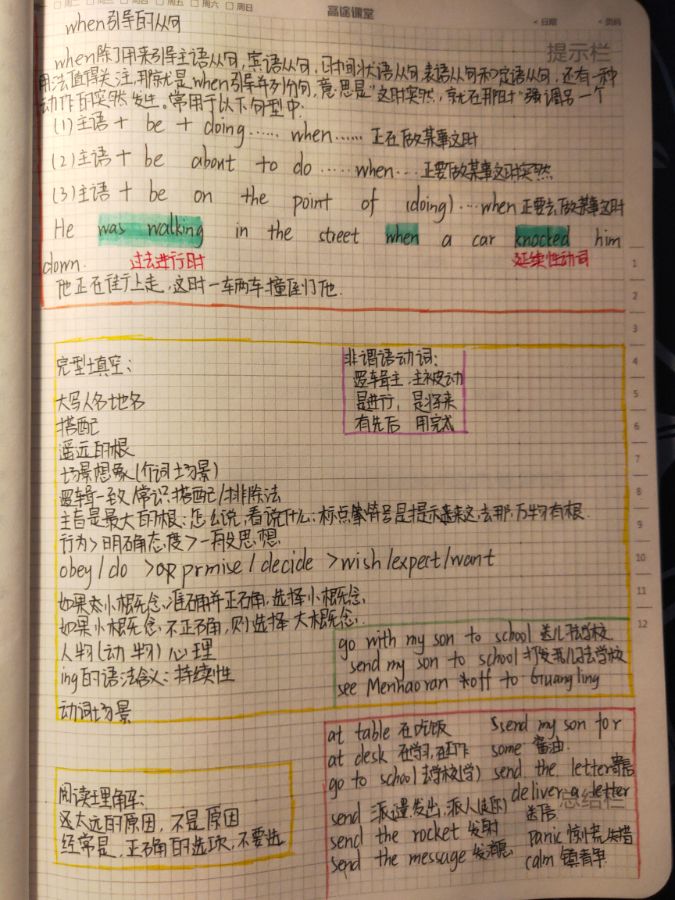 周五 周六 周日
高途课堂
日期
页码
提示栏
when引导的从句
when除了用来引导主语从句,宾语从句,时间状语从句,表语从句和定语从句,还有一种
用法值得关注,那就是when引导并列分句,意思是"这时突然,就在那时"强调另一个
动作的突然发生。常用于以下句型中:
(1)主语+ be + doing……when……正在做某事这时
(2)主语+ be about to do……when…正要做某事这时突然
(3)主语+ be on the point of (doing)…when正要去做某事这时
He was walking in the street when a car knocked him
down. 过去进行时 延续性动词
他正在街上走,这时一车两车撞倒了他.
完型填空:
大写人名地名
搭配
遥远的根
场景想象(介词场景)
逻辑一致/常识搭配/排除法
主旨是最大的根:怎么说,看说什么:标点符号是提示来这,去那,万物有根.
行为>明确态度>一般思想.
obey/do >or prmise/decide >wish/expect/want
如果大小概念,准确并正确,选择小概念.
如果小概念,不正确,则选择大概念.
人物(动物)心理
ing的语法含义:持续性
动词场景
非谓语动词:
逻辑主,主被动
是进行,是将来
有先后 用完太
go with my son to school 送儿子去学校
send my son to school 打发我儿子去学校
see Menhaoran off to Guangling
at table 在吃饭
at desk 在学习,在工作
go to school去学校(学)
send 派遣,发出,派人(送)
send the rocket 发射
send the message 发消息
send my son for
some 酱油.
send the letter寄信
deliver a letter
送信
panic 惊慌失措
calm 镇静
总结栏
阅读理解:
这太远的原因,不是原因
经常是,正确的选项,不要选
1
2
3
4
5
6
7
8
9
10
11
12